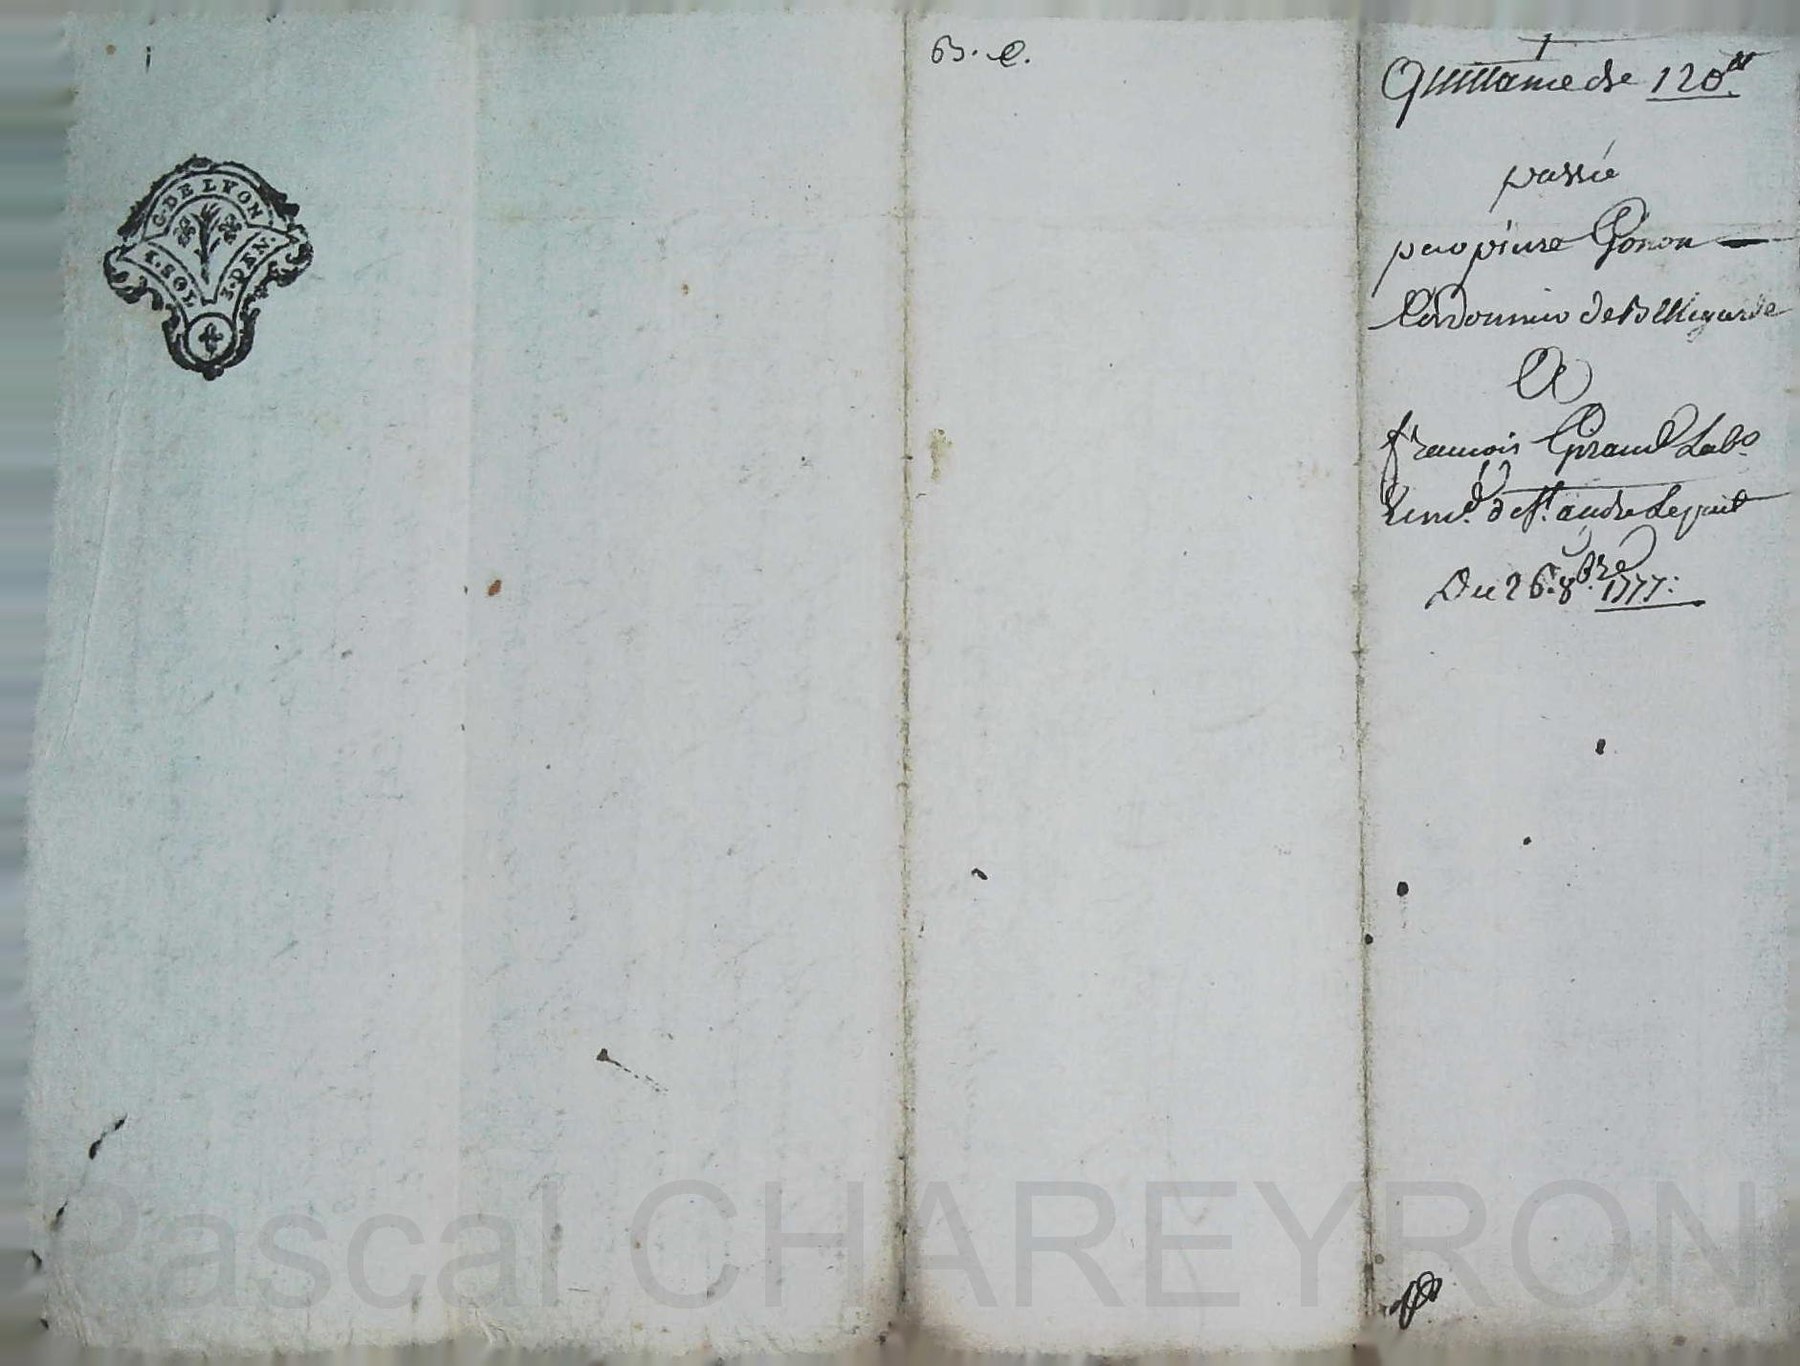 G. DE LYON
1. SOL 3. DEN.
B. C.
Quittance de 120ᵗᵗ
passée
par pierre Gonon
Cordonnier de Bellegarde
A
françois Giraud Labʳ
de Sᵗ. andré Le puit
Du 26. 8ᵇʳᵉ 1777.
Pascal CHAREYRON